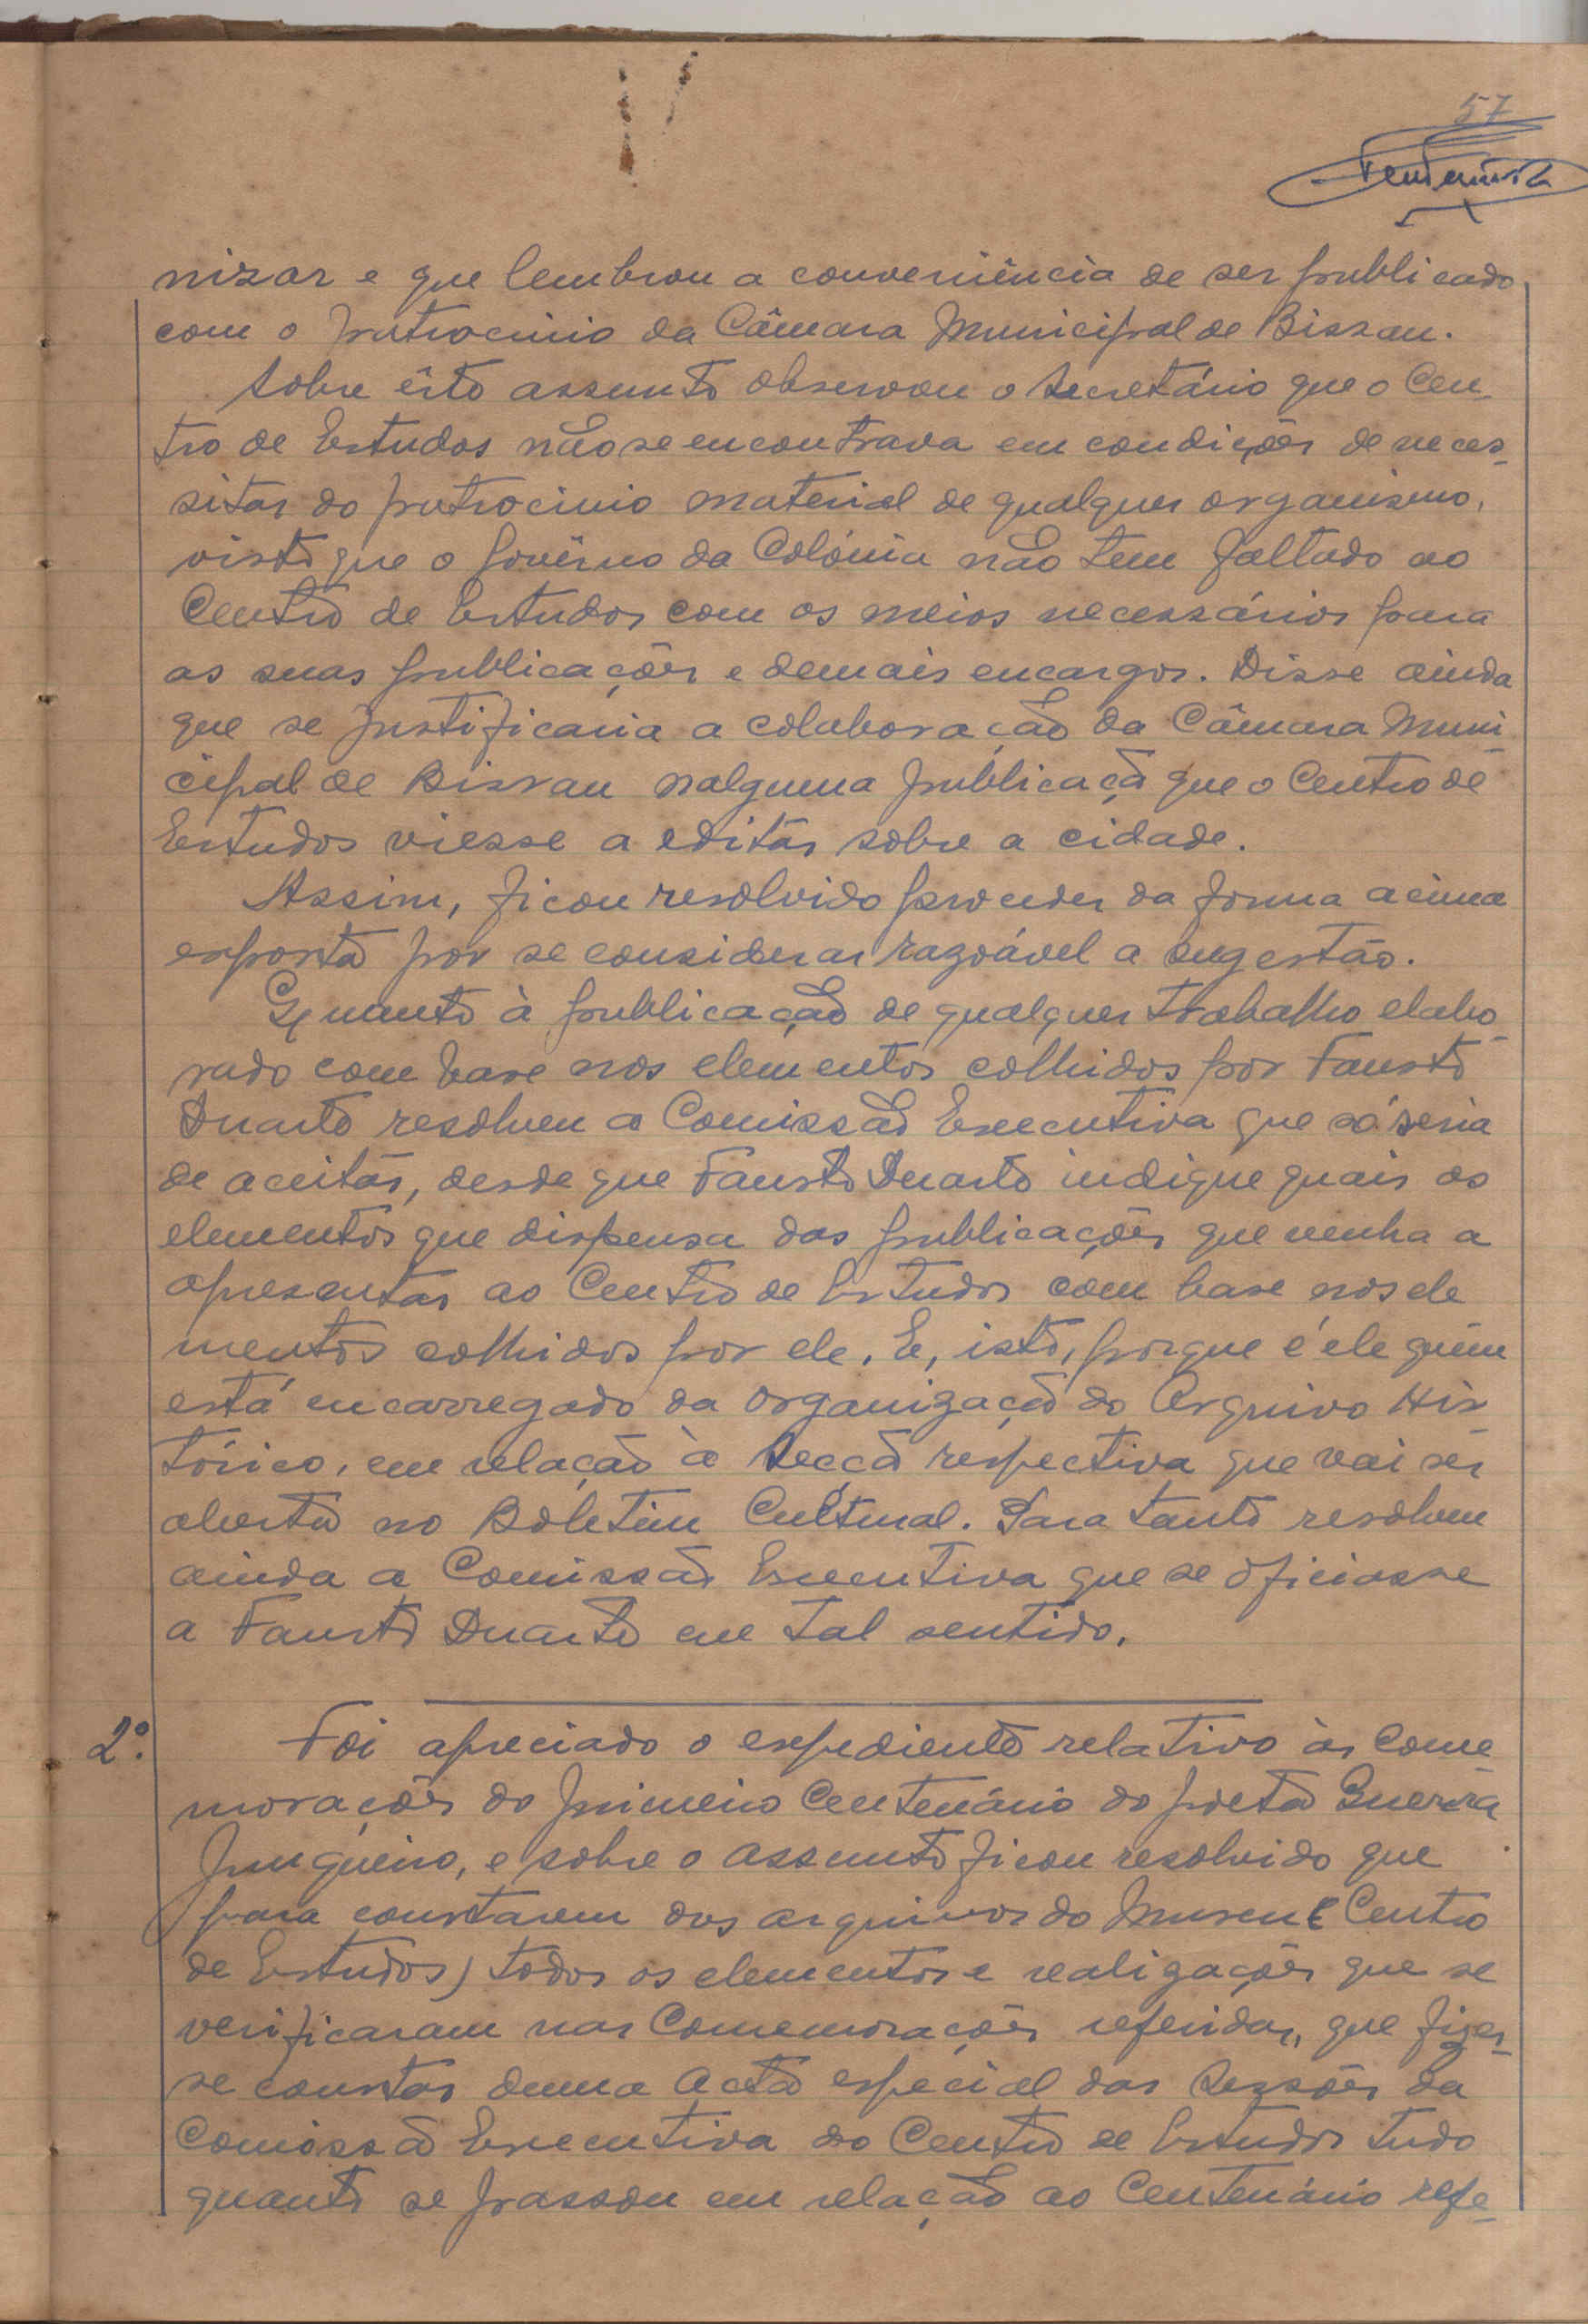 57
nizar e que lembrou a conveniência de ser publicado
com o patrocinio da Câmara Municipal de Bissau.
Sobre êste assunto observou o Secretário que o Cen-
tro de Estudos não se encontrava em condições de neces-
sitar do patrocinio material de qualquer organismo,
visto que o Govêrno da Colónia não tem faltado ao
Centro de Estudos com os meios necessários para
as suas publicações e demais encargos. Disse ainda
que se justificaria a colaboração da Câmara Muni-
cipal de Bissau nalguma publicação que o Centro de
Estudos viesse a editar sobre a cidade.
Assim, ficou resolvido proceder da forma acima
exposta por se considerar razoável a sugestão.
Quanto à publicação de qualquer trabalho elabo-
rado com base nos elementos colhidos por Fausto
Duarte resolveu a Comissão Executiva que só seria
de aceitar, desde que Fausto Duarte indique quais os
elementos que dispensa das publicações que venha a
apresentar ao Centro de Estudos com base nos ele
mentos colhidos por ele. E, isto, porque é ele quem
está encarregado da organização do Arquivo His
tórico, em relação à Secção respectiva que vai ser
aberta no Boletim Cultural. Para tanto resolveu
ainda a Comissão Executiva que se oficiasse
a Fausto Duarte em tal sentido.
2º. Foi apreciado o expediente relativo às Come
morações do primeiro Centenário do poeta Guerra
Junqueiro, e sobre o assunto ficou resolvido que
para constarem dos arquivos do Museu e Centro
de Estudos) todos os elementos e realizações que se
verificaram nas Comemorações referidas, que fizes-
se constar duma Acta especial das Sessões da
Comissão Executiva do Centro de Estudos tudo
quanto se passou em relação ao Centenário refe-